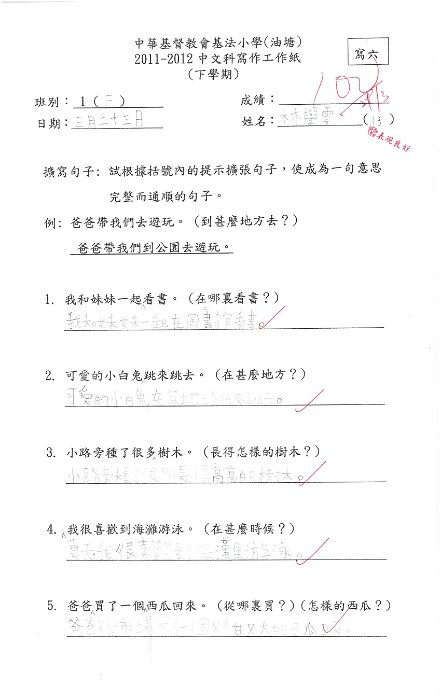 中華基督教會基法小學(油塘)
2011-2012 中文科寫作工作紙
(下學期)
寫六
班別: 1 ( )
成績:
日期: 三月二十三日
姓名: 林 (13)
表現良好
擴寫句子: 試根據括號內的提示擴張句子,使成為一句意思
完整而通順的句子。
例: 爸爸帶我們去遊玩。(到甚麼地方去?)
爸爸帶我們到公園去遊玩。
1. 我和妹妹一起看書。(在哪裏看書?)
我和妹妹一起在圖書館看書。
2. 可愛的小白兔跳來跳去。(在甚麼地方?)
可愛的小白兔在
3. 小路旁種了很多樹木。(長得怎樣的樹木?)
小路旁種 長得高高的樹木。
4. 我很喜歡到海灘游泳。(在甚麼時候?)
夏天我很喜 游泳。
5. 爸爸買了一個西瓜回來。(從哪裏買?)(怎樣的西瓜?)
爸爸 一個又 又大的西瓜